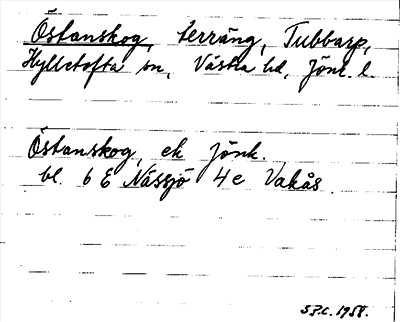 Östanskog, terräng, Tubbarp,
Hylletofta sn, Västra hd, Jönk. l.
Östanskog, ek Jönk.
bl. 6 E Nässjö 4 e Vakås
1958.